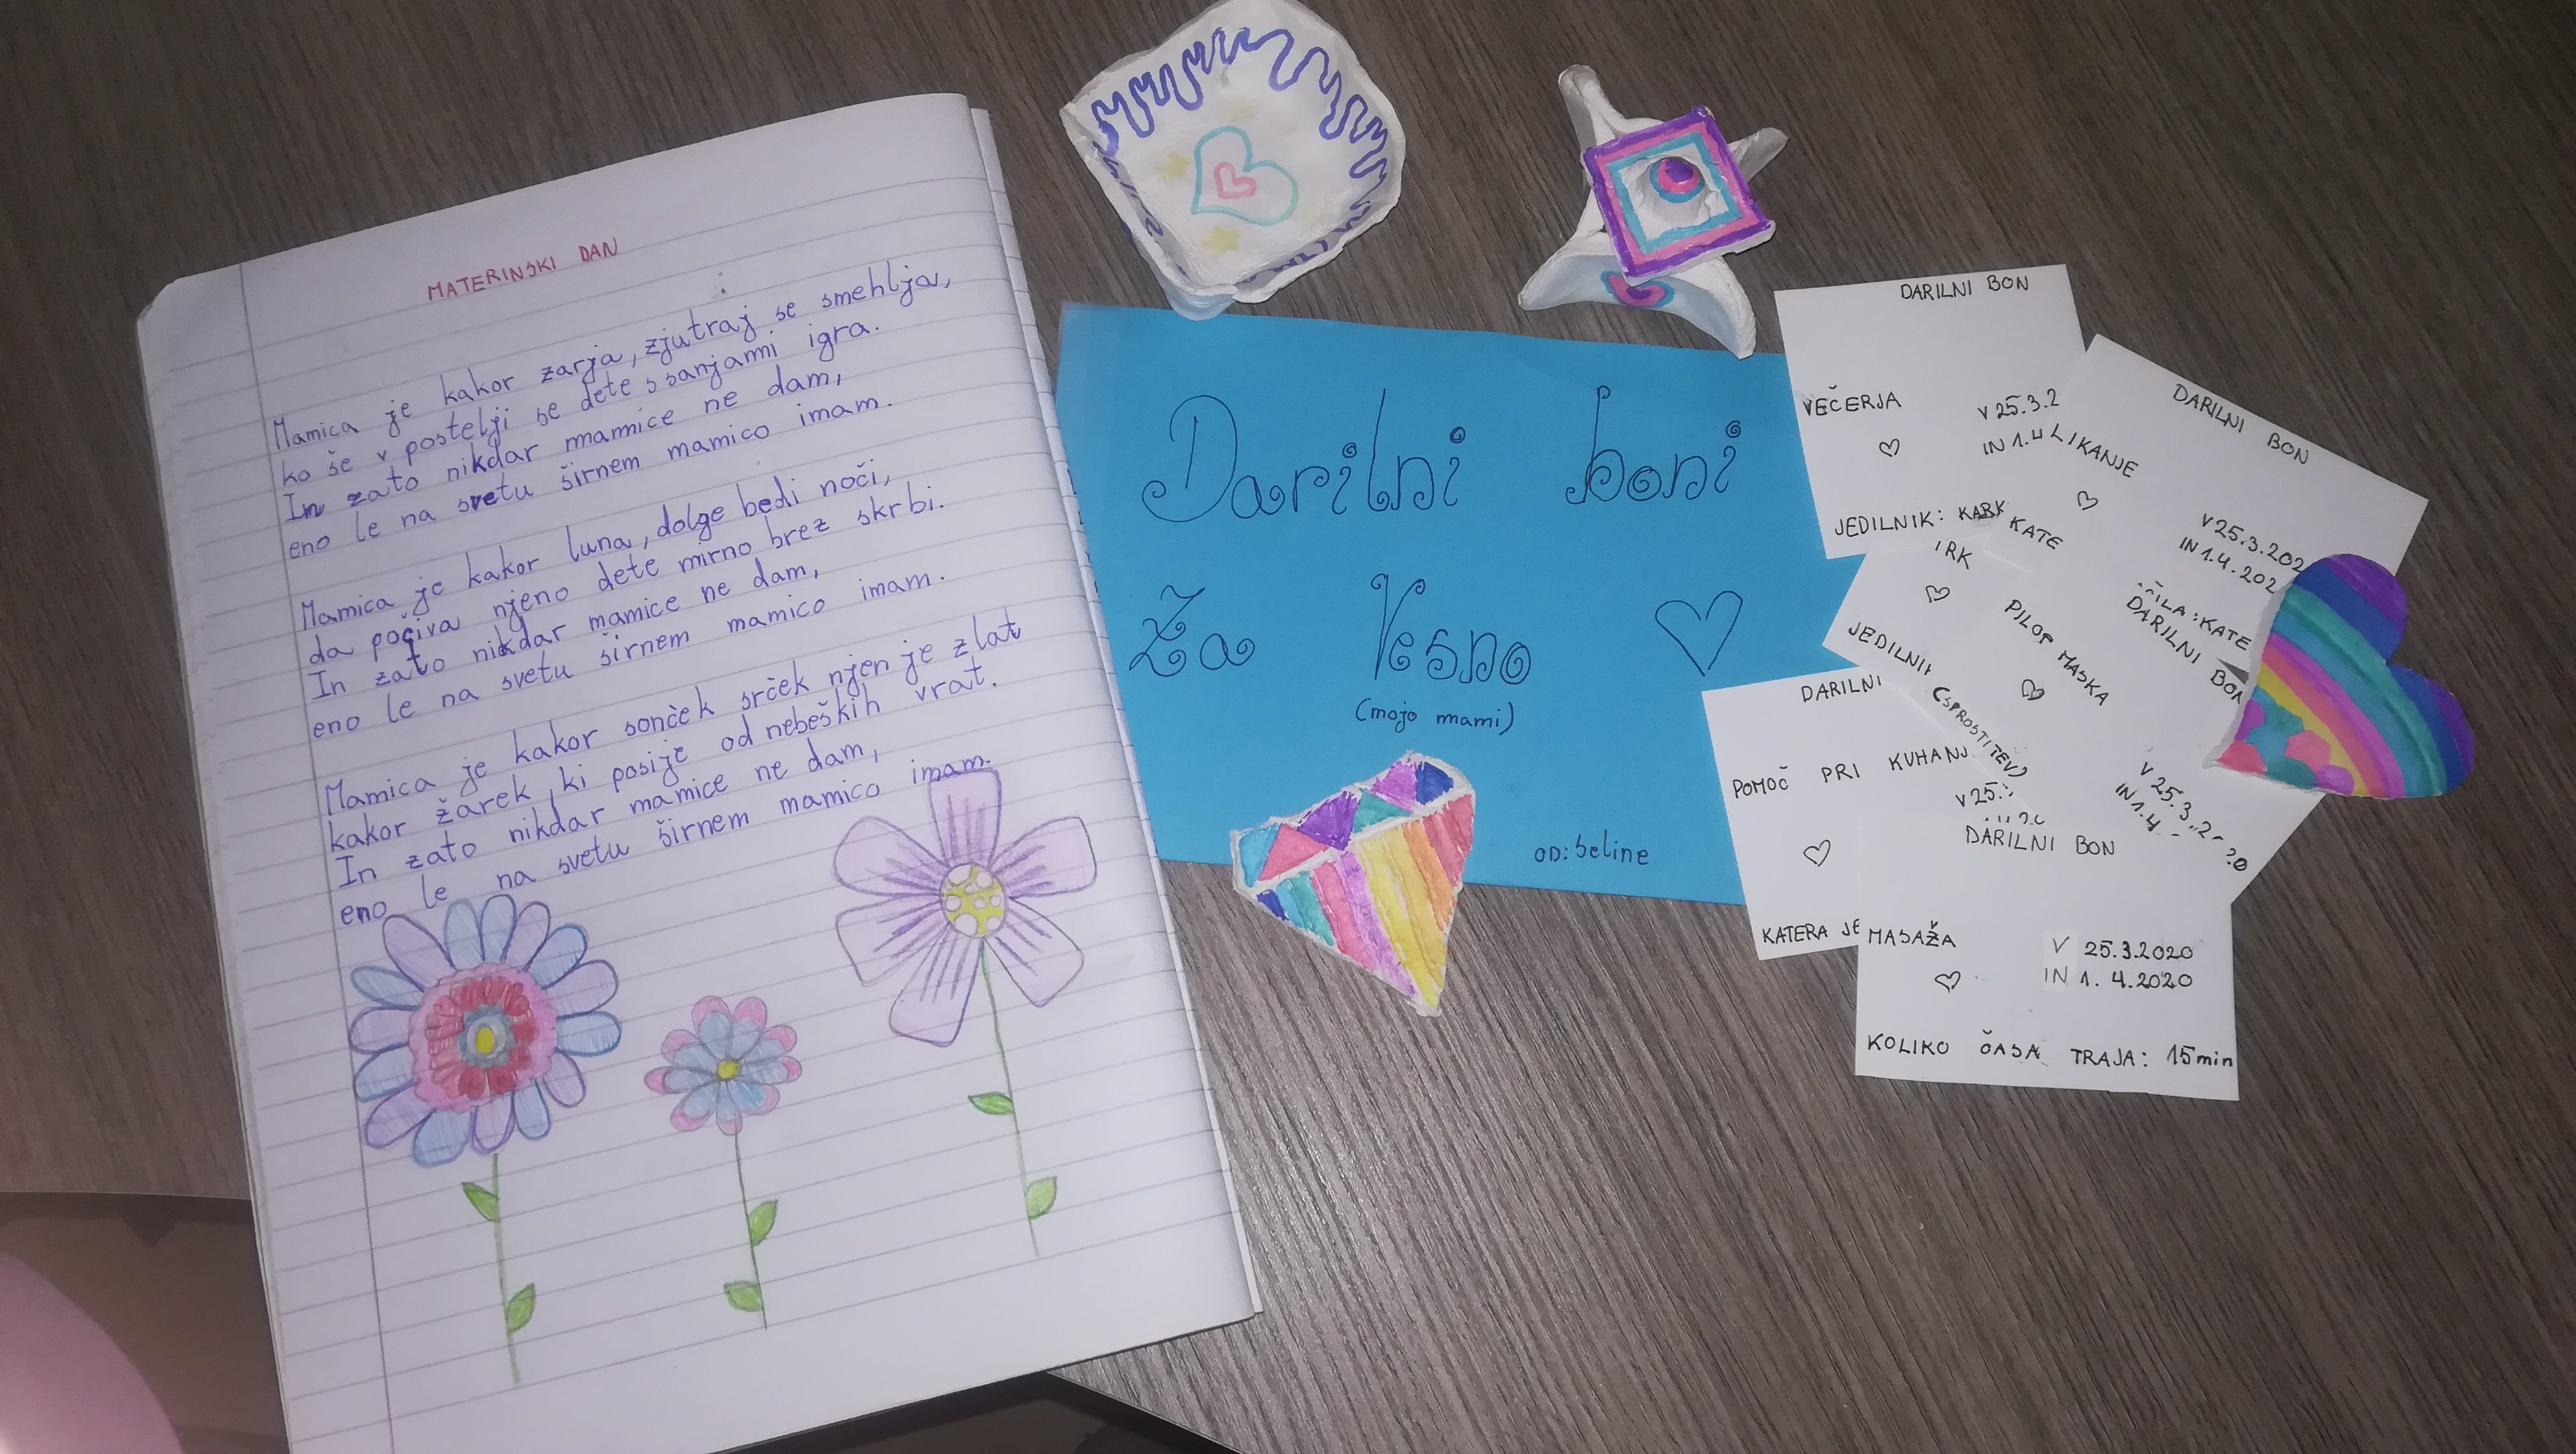 MATERINSKI DAN
Mamica je kakor zarja, zjutraj se smehlja,
ko še v postelji se dete s sanjami igra.
In zato nikdar mamice ne dam,
eno le na svetu širnem mamico imam.
Mamica je kakor luna, dolge bedi noči,
da počiva njeno dete mirno brez skrbi.
In zato nikdar mamice ne dam,
eno le na svetu širnem mamico imam.
Mamica je kakor sonček srček njen je zlat
kakor žarek, ki posije od nebeških vrat.
In zato nikdar mamice ne dam,
eno le na svetu širnem mamico imam.
Darilni boni
Za Vesno
(mojo mami)
OD: seline
DARILNI BON
VEČERJA
V 25.3.2
IN 1.4
JEDILNIK: KARK
IRK
JEDILNIK
DARILNI BON
LIKANJE
V 25.3.202
IN 1.4.202
KATE
ČILA: KATE
DARILNI BON
PILOF MASKA
(SPROSTITEV)
V 25.3.2
IN 1.4
DARILNI
POMOČ PRI KUHANJ
V 25.
KATERA JE
DARILNI BON
MASAŽA
V 25.3.2020
IN 1.4.2020
KOLIKO ČASA TRAJA: 15min